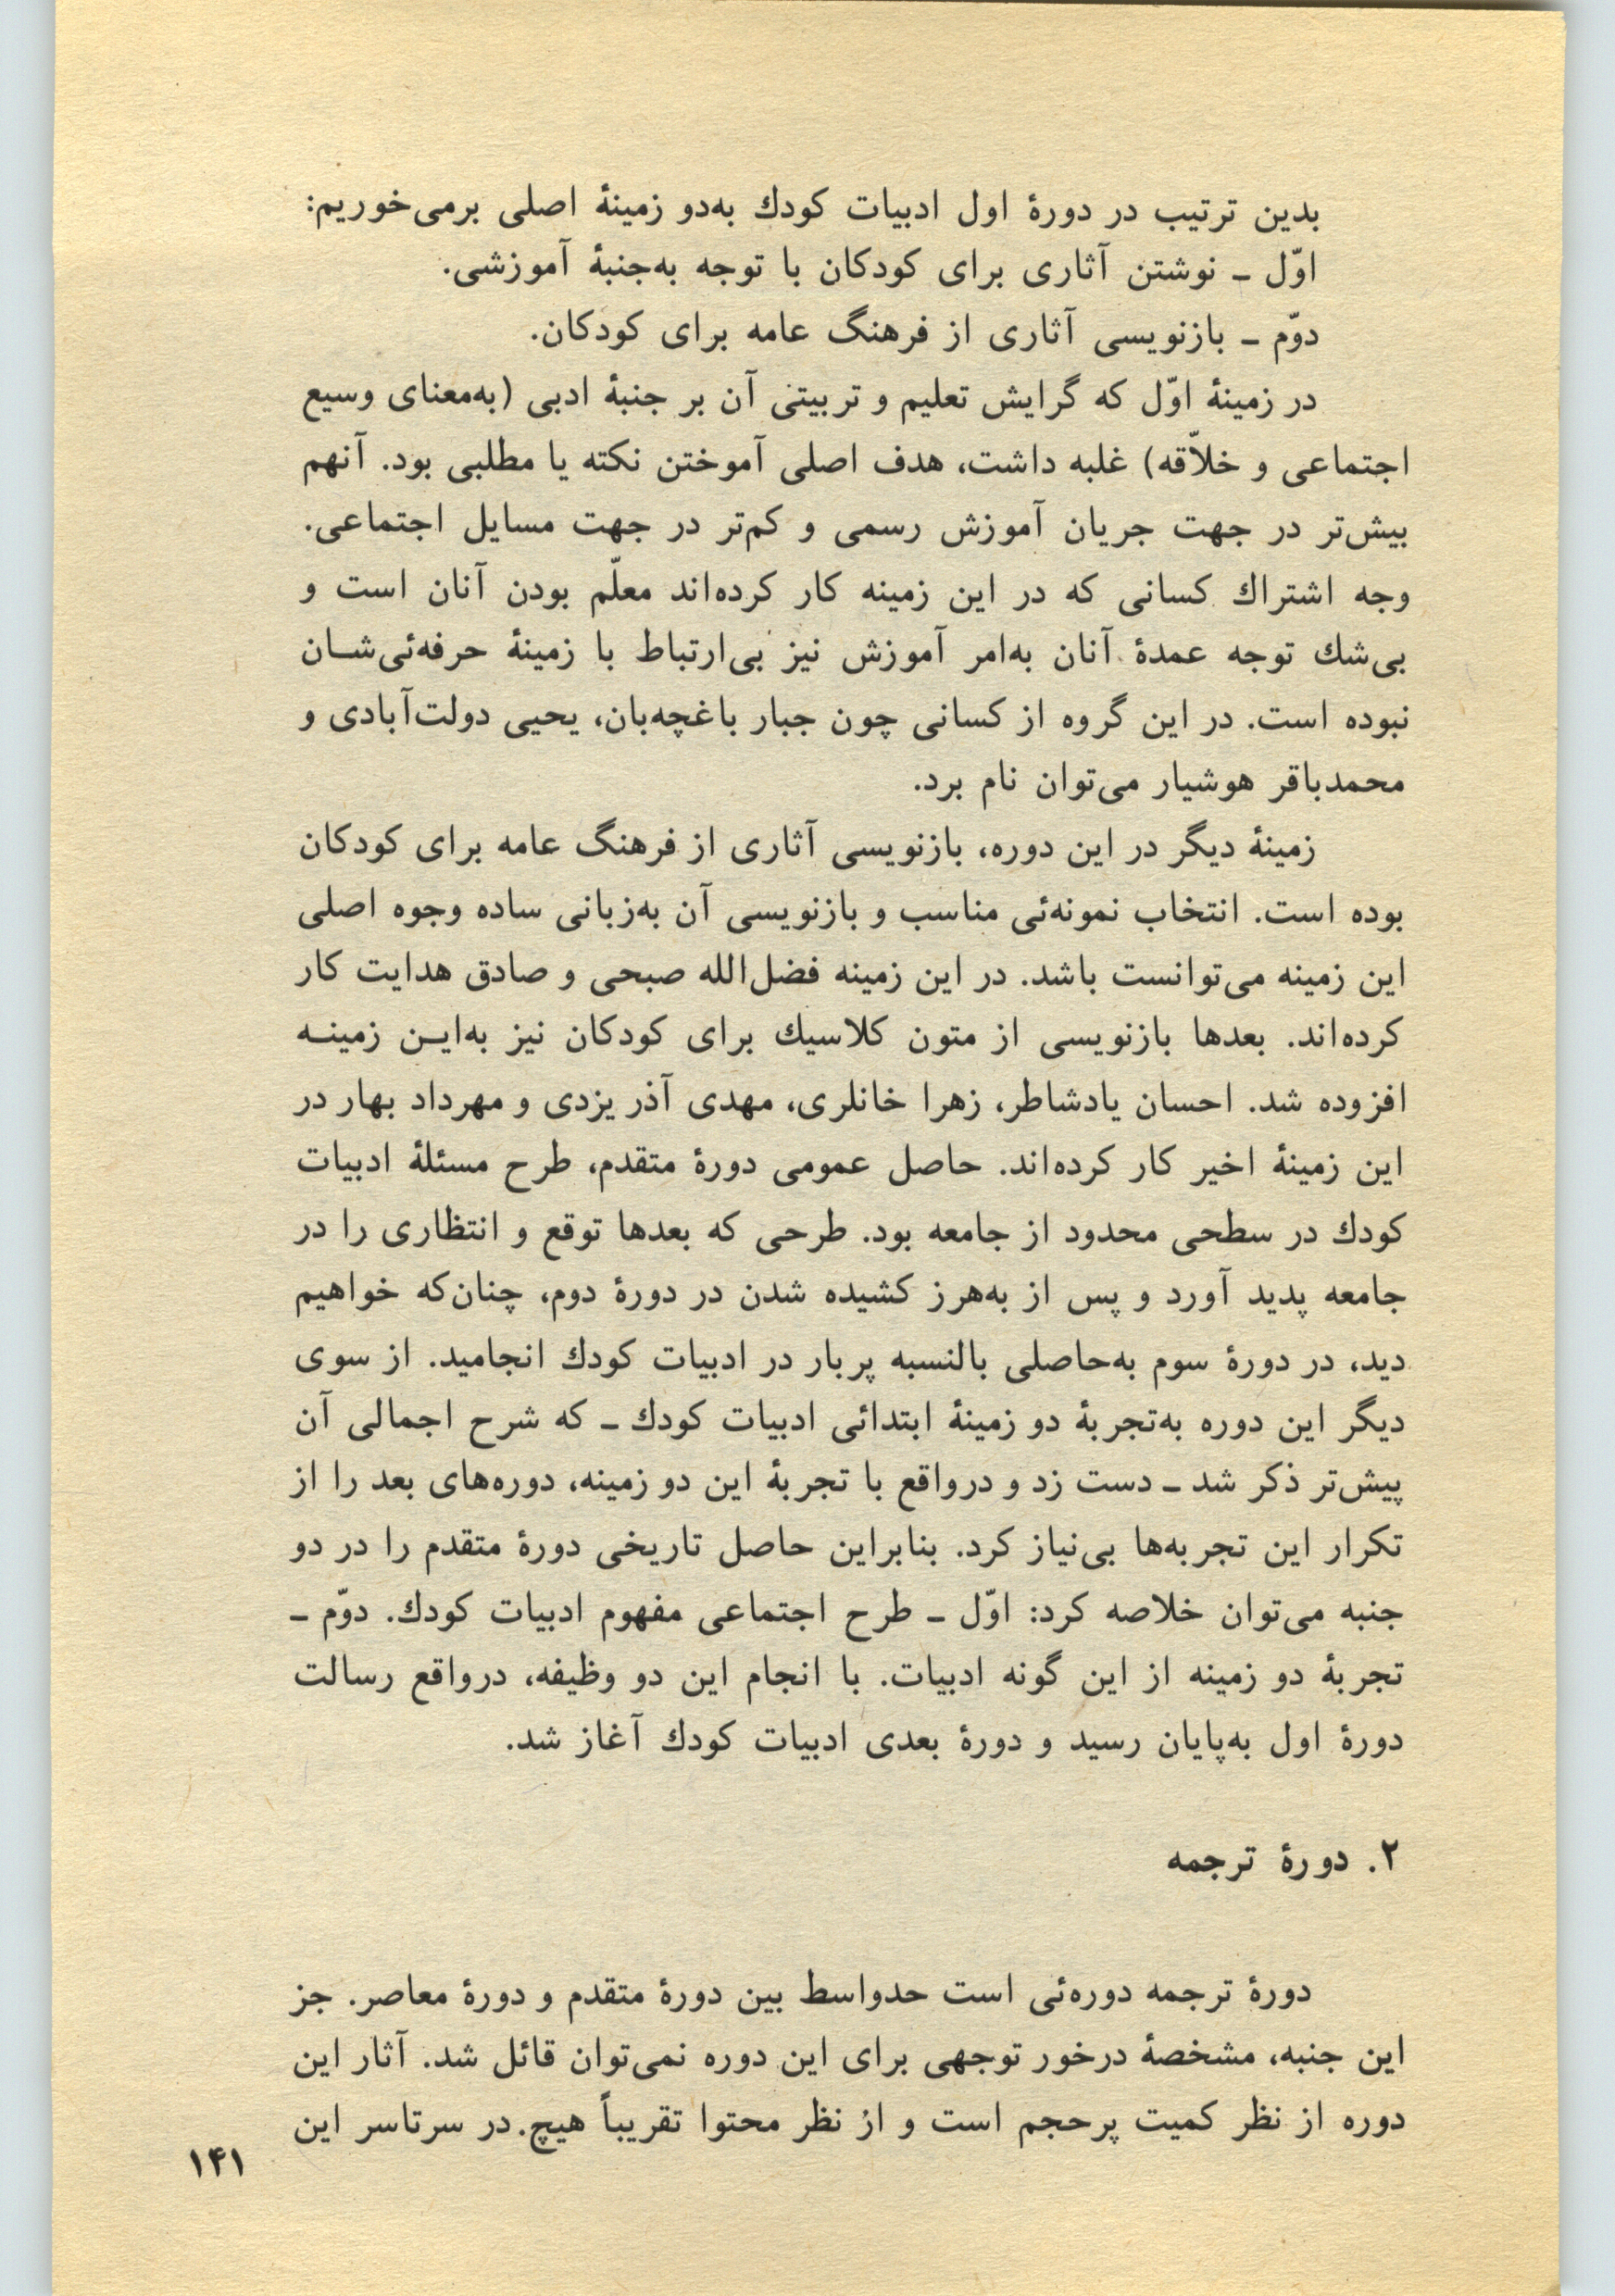 بدین ترتیب در دورهٔ اول ادبیات کودك به‌دو زمینهٔ اصلی برمی‌خوریم:
اوّل ـ نوشتن آثاری برای کودکان با توجه به‌جنبهٔ آموزشی.
دوّم ـ بازنویسی آثاری از فرهنگ عامه برای کودکان.
در زمینهٔ اوّل که گرایش تعلیم و تربیتی آن بر جنبهٔ ادبی (به‌معنای وسیع
اجتماعی و خلاّقه) غلبه داشت، هدف اصلی آموختن نکته یا مطلبی بود. آنهم
بیش‌تر در جهت جریان آموزش رسمی و کم‌تر در جهت مسایل اجتماعی.
وجه اشتراك کسانی که در این زمینه کار کرده‌اند معلّم بودن آنان است و
بی‌شك توجه عمدهٔ آنان به‌امر آموزش نیز بی‌ارتباط با زمینهٔ حرفه‌ئی‌شـان
نبوده است. در این گروه از کسانی چون جبار باغچه‌بان، یحیی دولت‌آبادی و
محمدباقر هوشیار می‌توان نام برد.
زمینهٔ دیگر در این دوره، بازنویسی آثاری از فرهنگ عامه برای کودکان
بوده است. انتخاب نمونه‌ئی مناسب و بازنویسی آن به‌زبانی ساده وجوه اصلی
این زمینه می‌توانست باشد. در این زمینه فضل‌الله صبحی و صادق هدایت کار
کرده‌اند. بعدها بازنویسی از متون کلاسیك برای کودکان نیز به‌ایـن زمینـه
افزوده شد. احسان یادشاطر، زهرا خانلری، مهدی آذر یزدی و مهرداد بهار در
این زمینهٔ اخیر کار کرده‌اند. حاصل عمومی دورهٔ متقدم، طرح مسئلهٔ ادبیات
کودك در سطحی محدود از جامعه بود. طرحی که بعدها توقع و انتظاری را در
جامعه پدید آورد و پس از به‌هرز کشیده شدن در دورهٔ دوم، چنان‌که خواهیم
دید، در دورهٔ سوم به‌حاصلی بالنسبه پربار در ادبیات کودك انجامید. از سوی
دیگر این دوره به‌تجربهٔ دو زمینهٔ ابتدائی ادبیات کودك ـ که شرح اجمالی آن
پیش‌تر ذکر شد ـ دست زد و درواقع با تجربهٔ این دو زمینه، دوره‌های بعد را از
تکرار این تجربه‌ها بی‌نیاز کرد. بنابراین حاصل تاریخی دورهٔ متقدم را در دو
جنبه می‌توان خلاصه کرد: اوّل ـ طرح اجتماعی مفهوم ادبیات کودك. دوّم ـ
تجربهٔ دو زمینه از این گونه ادبیات. با انجام این دو وظیفه، درواقع رسالت
دورهٔ اول به‌پایان رسید و دورهٔ بعدی ادبیات کودك آغاز شد.
۲. دورهٔ ترجمه
دورهٔ ترجمه دوره‌ئی است حدواسط بین دورهٔ متقدم و دورهٔ معاصر. جز
این جنبه، مشخصهٔ درخور توجهی برای این دوره نمی‌توان قائل شد. آثار این
دوره از نظر کمیت پرحجم است و از نظر محتوا تقریباً هیچ. در سرتاسر این
۱۴۱